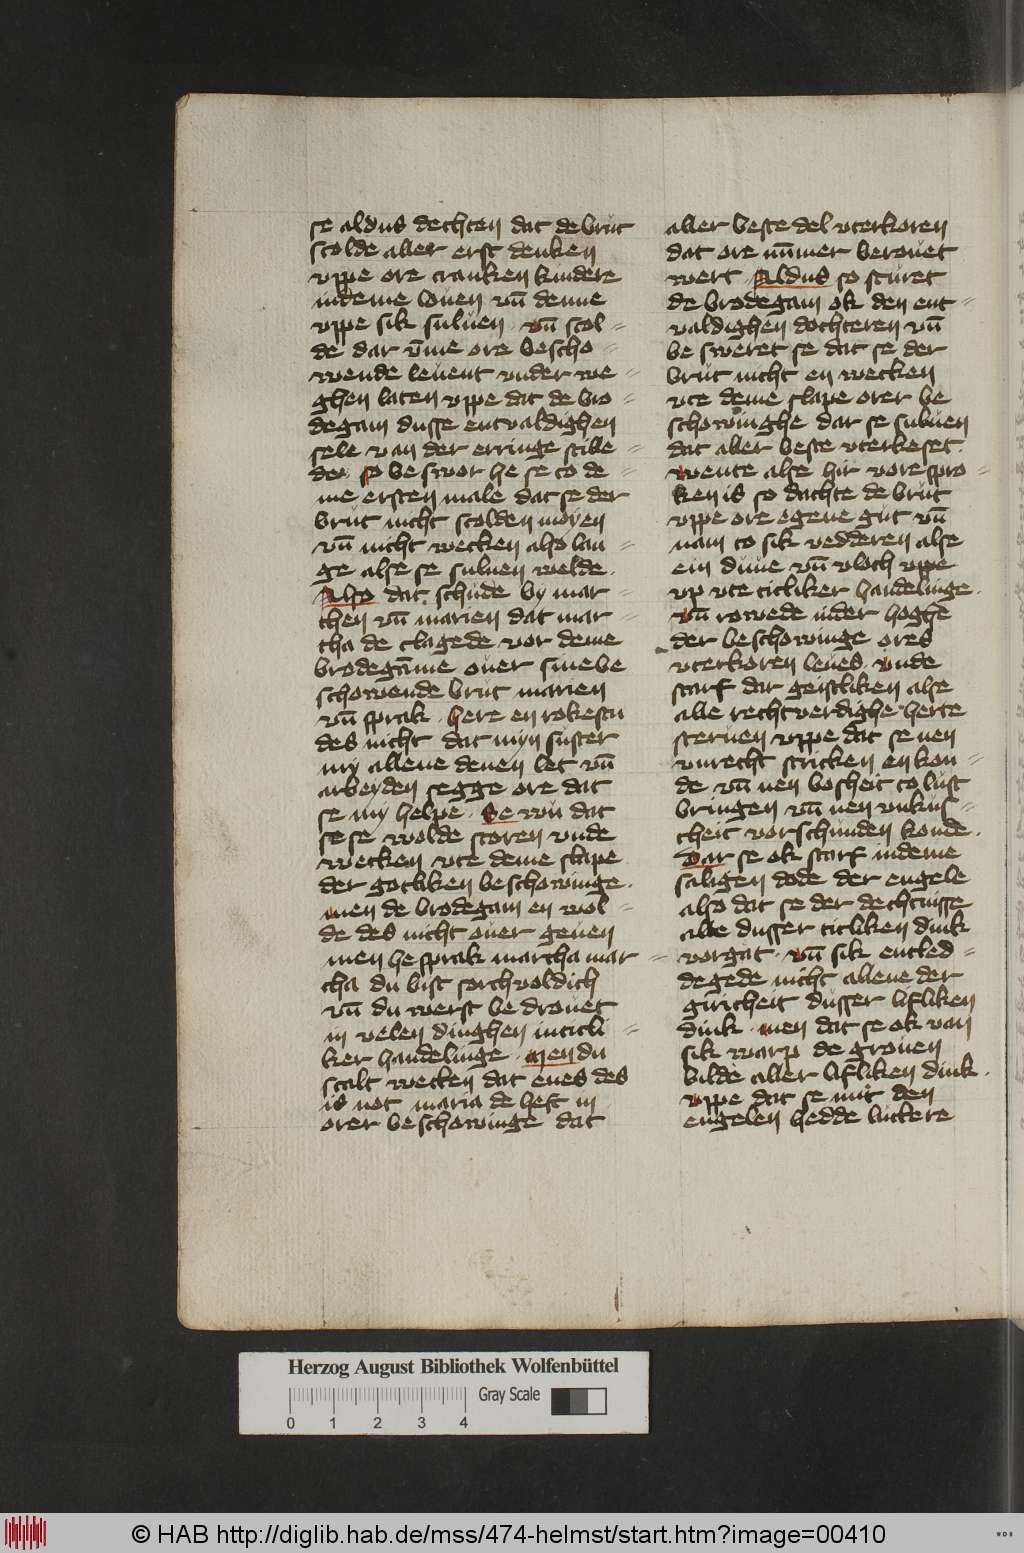 se aldus dechten dat de brut
scolde aller erst denken
vppe ore cranken kindere
indeme louen vn̄ denne
vppe sik suluen · vn̄ scol=
de dar v̄me ore bescho=
wende leuent vnder we=
ghen laten vppe dat de bro=
degam dusse entvaldighen
sele van der erringe stille=
de· so be swor he se to de=
me ersten male dat se der
brut nicht scolden moyen
vn̄ nicht wecken also lan=
ge alse se suluen welde ·
Also dat schude by mar=
then vn̄ marien dat mar=
tha de clagede vor deme
brodegāme ouer sine be
schowende brut marien
vn̄ sprak · here en rokestu
des nicht dat myn suster
my allene denen let vn̄
arbeyden segge ore dat
se my helpe · Se wu dat
se se wolde storen vnde
wecken vte deme slape
der gotliken beschowinge ·
men de brodegam en wol=
de des nicht ouer geuen
men he sprak martha mar=
tha du bist sorchvoldich
vn̄ du werst be drouet
in velen dinghen in titli=
ker handelinge · Men du
scalt wecken dat enes des
is not maria de heft in
orer beschowinge dat
aller beste del vterkoren
dat ore nūmer berouet
wert · Aldus so sturet
de brodegam ok den ent=
valdighen dochteren vn̄
be sweret se dat se der
brut nicht en wecken
vte deme slape orer be
schowinghe dar se suluen
dat aller beste vterkeset ·
wente alse hir vore spro=
ken is so dachte de brut
vppe ore egene gut vn̄
nam to sik vedderen alse
ein duue vn̄ vloch vppe
vp vte titliker handelinge ·
vn̄ rowede inder hoghe
der beschowinge ores
vterkoren leues · vnde
starf dar geistliken alse
alle rechtverdighe herte
steruen vppe dat se nen
vnrecht stricken en kon=
de vn̄ nen bosheit to lust
bringen vn̄ nen vnkus=
cheit vorschunden konde ·
Dar se ok starf indeme
saligen dode der engele
also dat se der dechtnisse
alle dusser titliken dink
vorgat · vn̄ sik entled=
degede nicht allene der
giricheit dusser lifliken
dink · men dat se ok van
sik warp de grouen
bilde aller lifliken dink ·
vppe dat se mit den
engelen hedde luttere
Herzog August Bibliothek Wolfenbüttel
Gray Scale
0 1 2 3 4
© HAB http://diglib.hab.de/mss/474-helmst/start.htm?image=00410